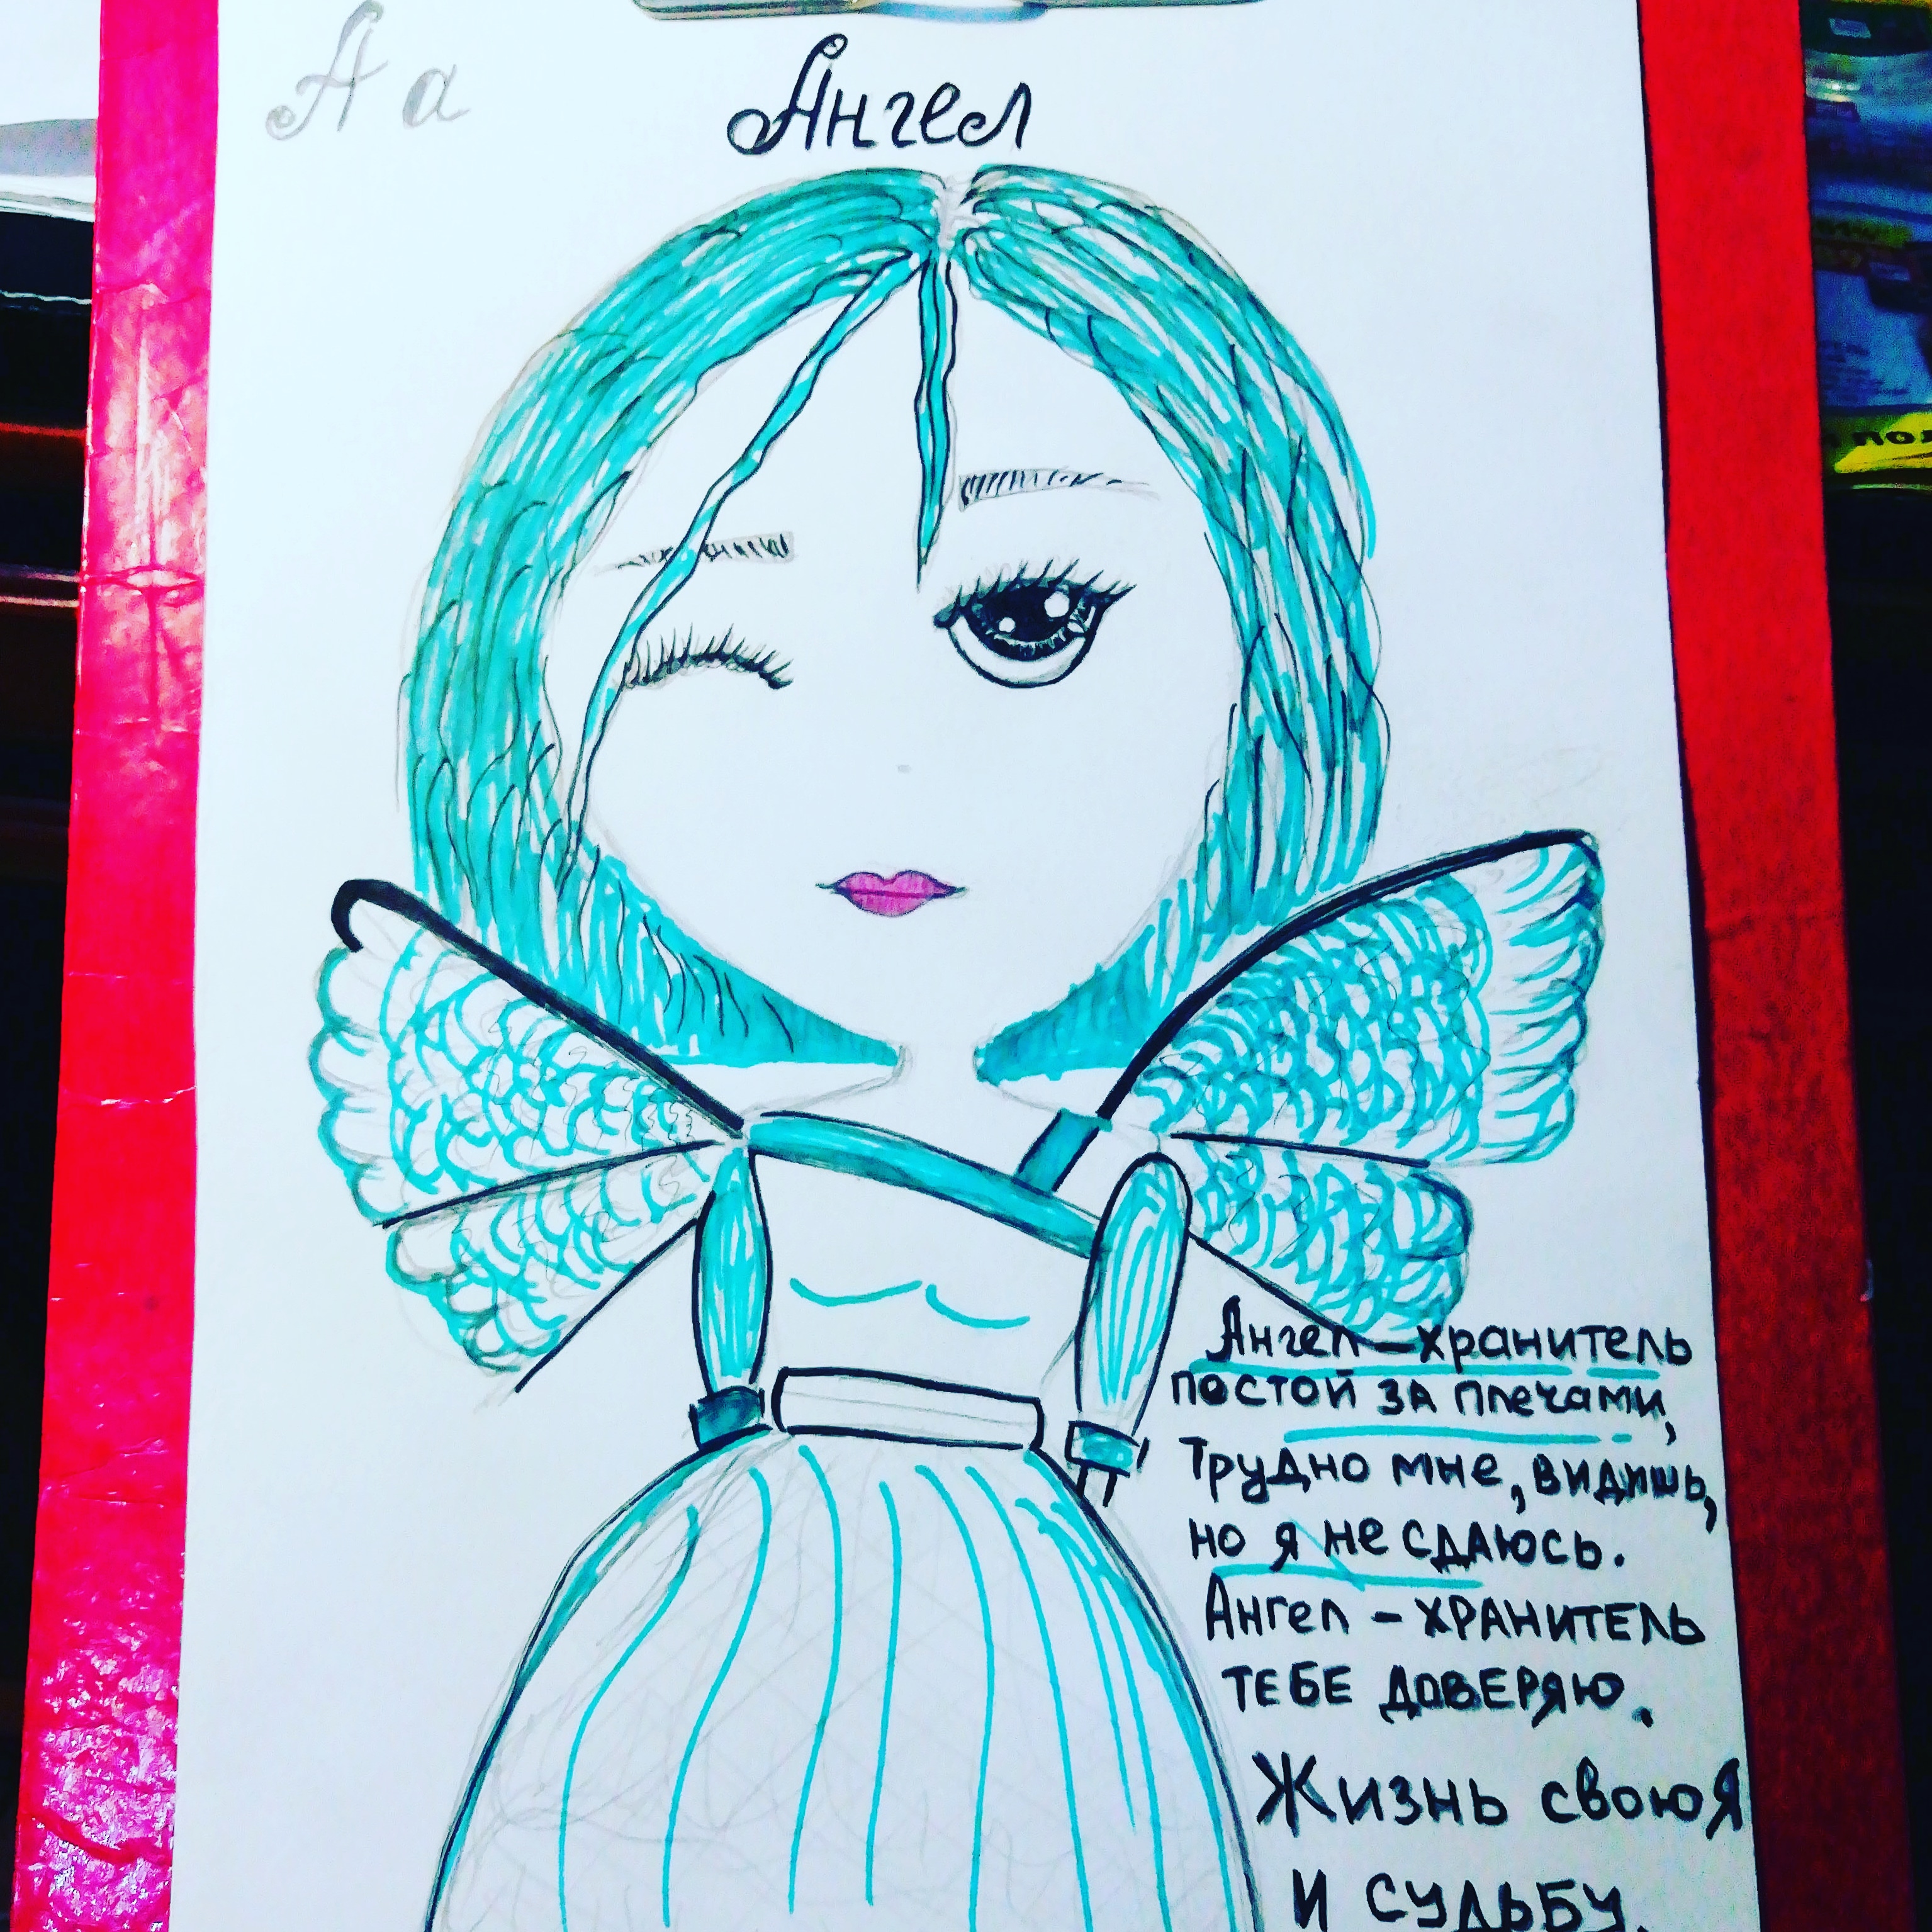 А а
Ангел
Ангел-хранитель
постой за плечами,
трудно мне, видишь,
но я не сдаюсь.
Ангел - ХРАНИТЕЛЬ
ТЕБЕ ДОВЕРЯЮ.
Жизнь свою я
и судьбу.